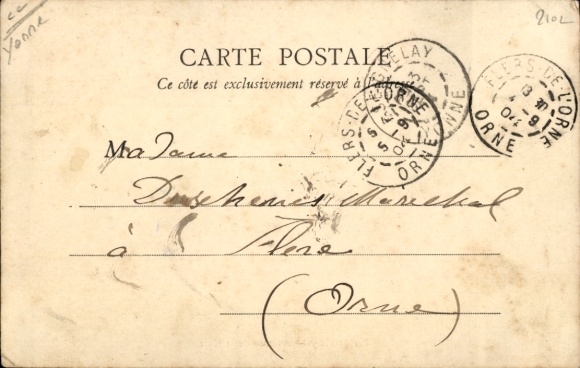 Yonne
2102
CARTE POSTALE
Ce côté est exclusivement réservé à l'adresse
FLERS-DE-L'ORNE
ORNE
FLERS-DE-L'ORNE
ORNE
Madame
Maréchal
à Flers
(Orne)